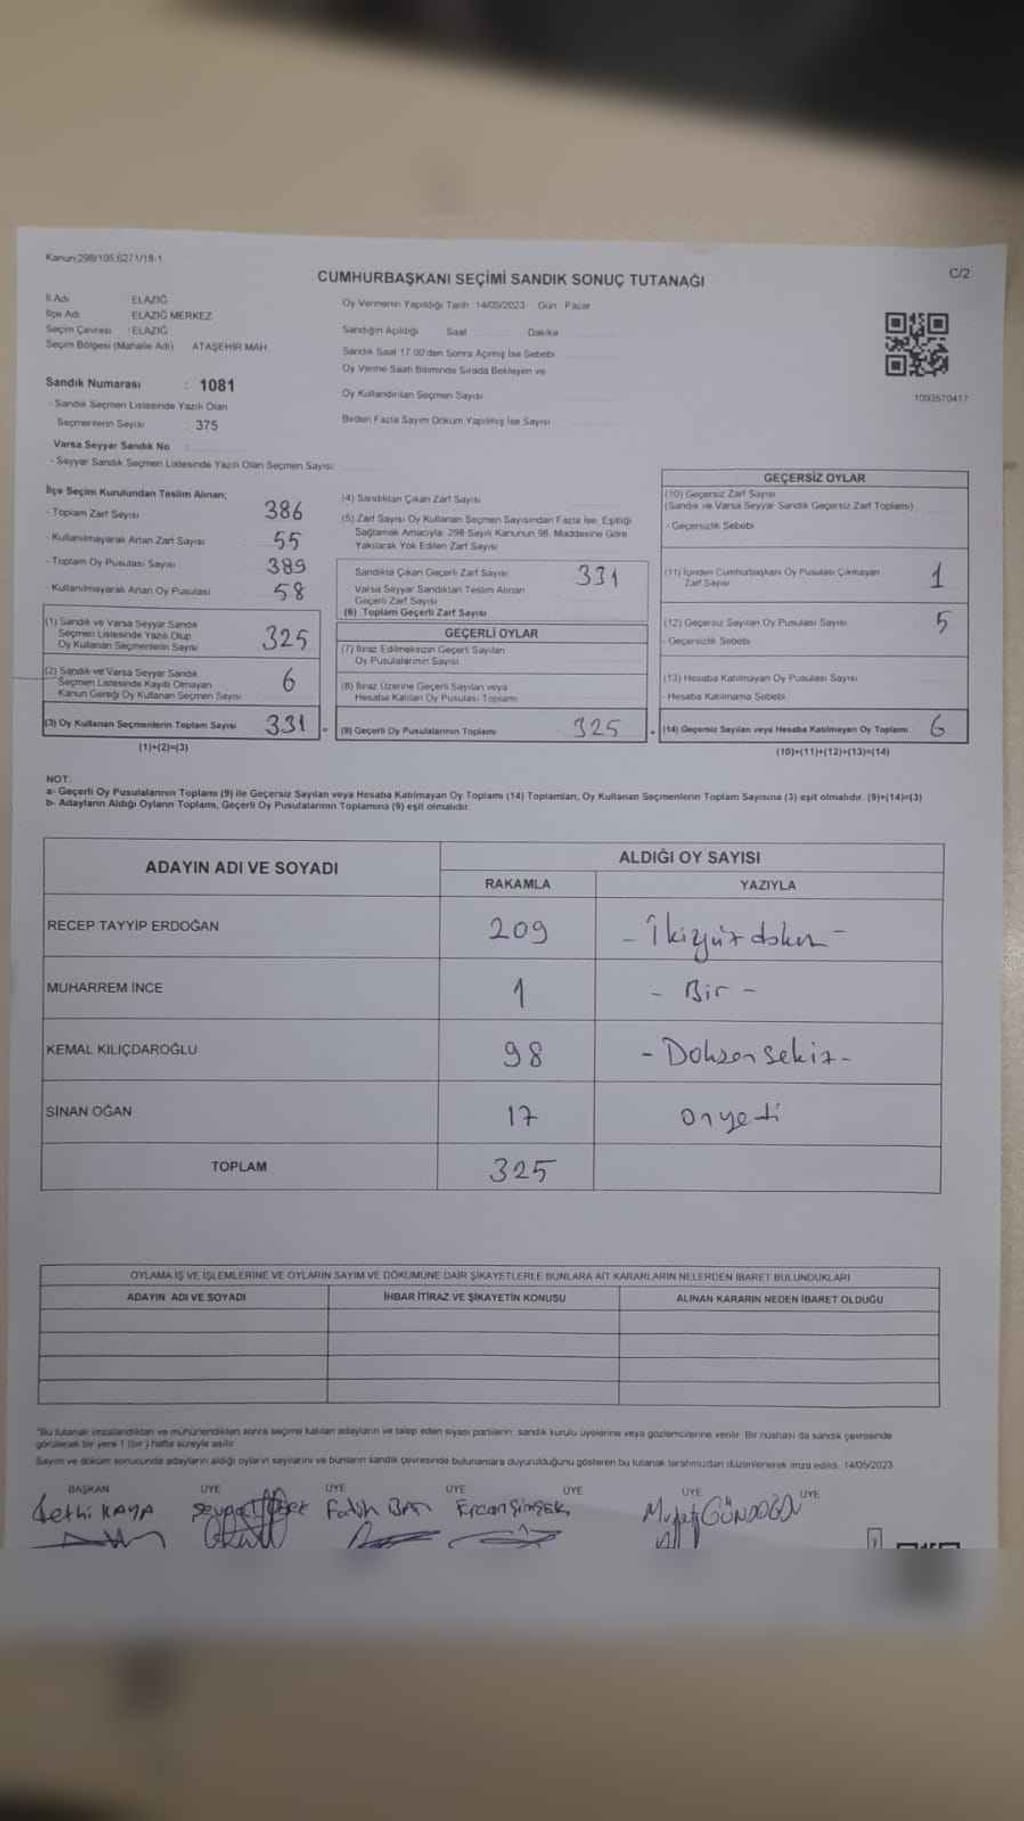 Kanun:298/105;6271/18-1
CUMHURBAŞKANI SEÇİMİ SANDIK SONUÇ TUTANAĞI
C/2
İl Adı ELAZIĞ
İlçe Adı ELAZIĞ MERKEZ
Seçim Çevresi : ELAZIĞ
Seçim Bölgesi (Mahalle Adı) ATAŞEHİR MAH.
Sandık Numarası : 1081
- Sandık Seçmen Listesinde Yazılı Olan
Seçmenlerin Sayısı 375
Varsa Seyyar Sandık No
- Seyyar Sandık Seçmen Listesinde Yazılı Olan Seçmen Sayısı
Oy Vermenin Yapıldığı Tarih 14/05/2023 Gün Pazar
Sandığın Açıldığı Saat Dakika
Sandık Saat 17.00'den Sonra Açılmış İse Sebebi
Oy Verme Saati Bitiminde Sırada Bekleyen ve
Oy Kullandırılan Seçmen Sayısı
Birden Fazla Sayım Döküm Yapılmış İse Sayısı
1093570417
İlçe Seçim Kurulundan Teslim Alınan;
- Toplam Zarf Sayısı 386
- Kullanılmayarak Artan Zarf Sayısı 55
- Toplam Oy Pusulası Sayısı 389
- Kullanılmayarak Artan Oy Pusulası 58
(1) Sandık ve Varsa Seyyar Sandık
Seçmen Listesinde Yazılı Olup
Oy Kullanan Seçmenlerin Sayısı 325
(2) Sandık ve Varsa Seyyar Sandık
Seçmen Listesinde Kayıtlı Olmayan
Kanun Gereği Oy Kullanan Seçmen Sayısı 6
(3) Oy Kullanan Seçmenlerin Toplam Sayısı 331
(1)+(2)=(3)
(4) Sandıktan Çıkan Zarf Sayısı
(5) Zarf Sayısı Oy Kullanan Seçmen Sayısından Fazla İse, Eşitliği
Sağlamak Amacıyla 298 Sayılı Kanunun 98. Maddesine Göre
Yakılarak Yok Edilen Zarf Sayısı
Sandıkta Çıkan Geçerli Zarf Sayısı 331
Varsa Seyyar Sandıktan Teslim Alınan
Geçerli Zarf Sayısı
(6) Toplam Geçerli Zarf Sayısı
GEÇERLİ OYLAR
(7) İtiraz Edilmeksizin Geçerli Sayılan
Oy Pusulalarının Sayısı
(8) İtiraz Üzerine Geçerli Sayılan veya
Hesaba Katılan Oy Pusulası Toplamı
(9) Geçerli Oy Pusulalarının Toplamı 325
GEÇERSİZ OYLAR
(10) Geçersiz Zarf Sayısı
(Sandık ve Varsa Seyyar Sandık Geçersiz Zarf Toplamı)
- Geçersizlik Sebebi
(11) İçinden Cumhurbaşkanı Oy Pusulası Çıkmayan
Zarf Sayısı 1
(12) Geçersiz Sayılan Oy Pusulası Sayısı 5
- Geçersizlik Sebebi
(13) Hesaba Katılmayan Oy Pusulası Sayısı
- Hesaba Katılmama Sebebi
(14) Geçersiz Sayılan veya Hesaba Katılmayan Oy Toplamı 6
(10)+(11)+(12)+(13)=(14)
NOT:
a- Geçerli Oy Pusulalarının Toplamı (9) ile Geçersiz Sayılan veya Hesaba Katılmayan Oy Toplamı (14) Toplamları, Oy Kullanan Seçmenlerin Toplam Sayısına (3) eşit olmalıdır. (9)+(14)=(3)
b- Adayların Aldığı Oyların Toplamı, Geçerli Oy Pusulalarının Toplamına (9) eşit olmalıdır.
ADAYIN ADI VE SOYADI ALDIĞI OY SAYISI
RAKAMLA YAZIYLA
RECEP TAYYİP ERDOĞAN 209 - İkiyüz dokuz -
MUHARREM İNCE 1 - Bir -
KEMAL KILIÇDAROĞLU 98 - Doksan sekiz -
SİNAN OĞAN 17 onyedi
TOPLAM 325
OYLAMA İŞ VE İŞLEMLERİNE VE OYLARIN SAYIM VE DÖKÜMÜNE DAİR ŞİKAYETLERLE BUNLARA AİT KARARLARIN NELERDEN İBARET BULUNDUKLARI
ADAYIN ADI VE SOYADI İHBAR İTİRAZ VE ŞİKAYETİN KONUSU ALINAN KARARIN NEDEN İBARET OLDUĞU
"Bu tutanak imzalandıktan ve mühürlendikten sonra seçime katılan adayların ve talep eden siyasi partilerin; sandık kurulu üyelerine veya gözlemcilerine verilir. Bir nüshası da sandık çevresinde
görülecek bir yere 1 (bir) hafta süreyle asılır.
Sayım ve döküm sonucunda adayların aldığı oyların sayılarını ve bunların sandık çevresinde bulunanlara duyurulduğunu gösteren bu tutanak tarafımızdan düzenlenerek imza edildi. 14/05/2023
BAŞKAN ÜYE ÜYE ÜYE ÜYE ÜYE ÜYE
Fethi KAYA Fatih Ercan Şimşek GÜNDOĞDU